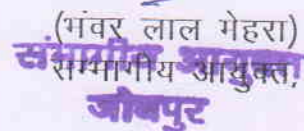 (भंवर लाल मेहरा)
संभागीय आयुक्त
सम्भागीय आयुक्त,
जोधपुर